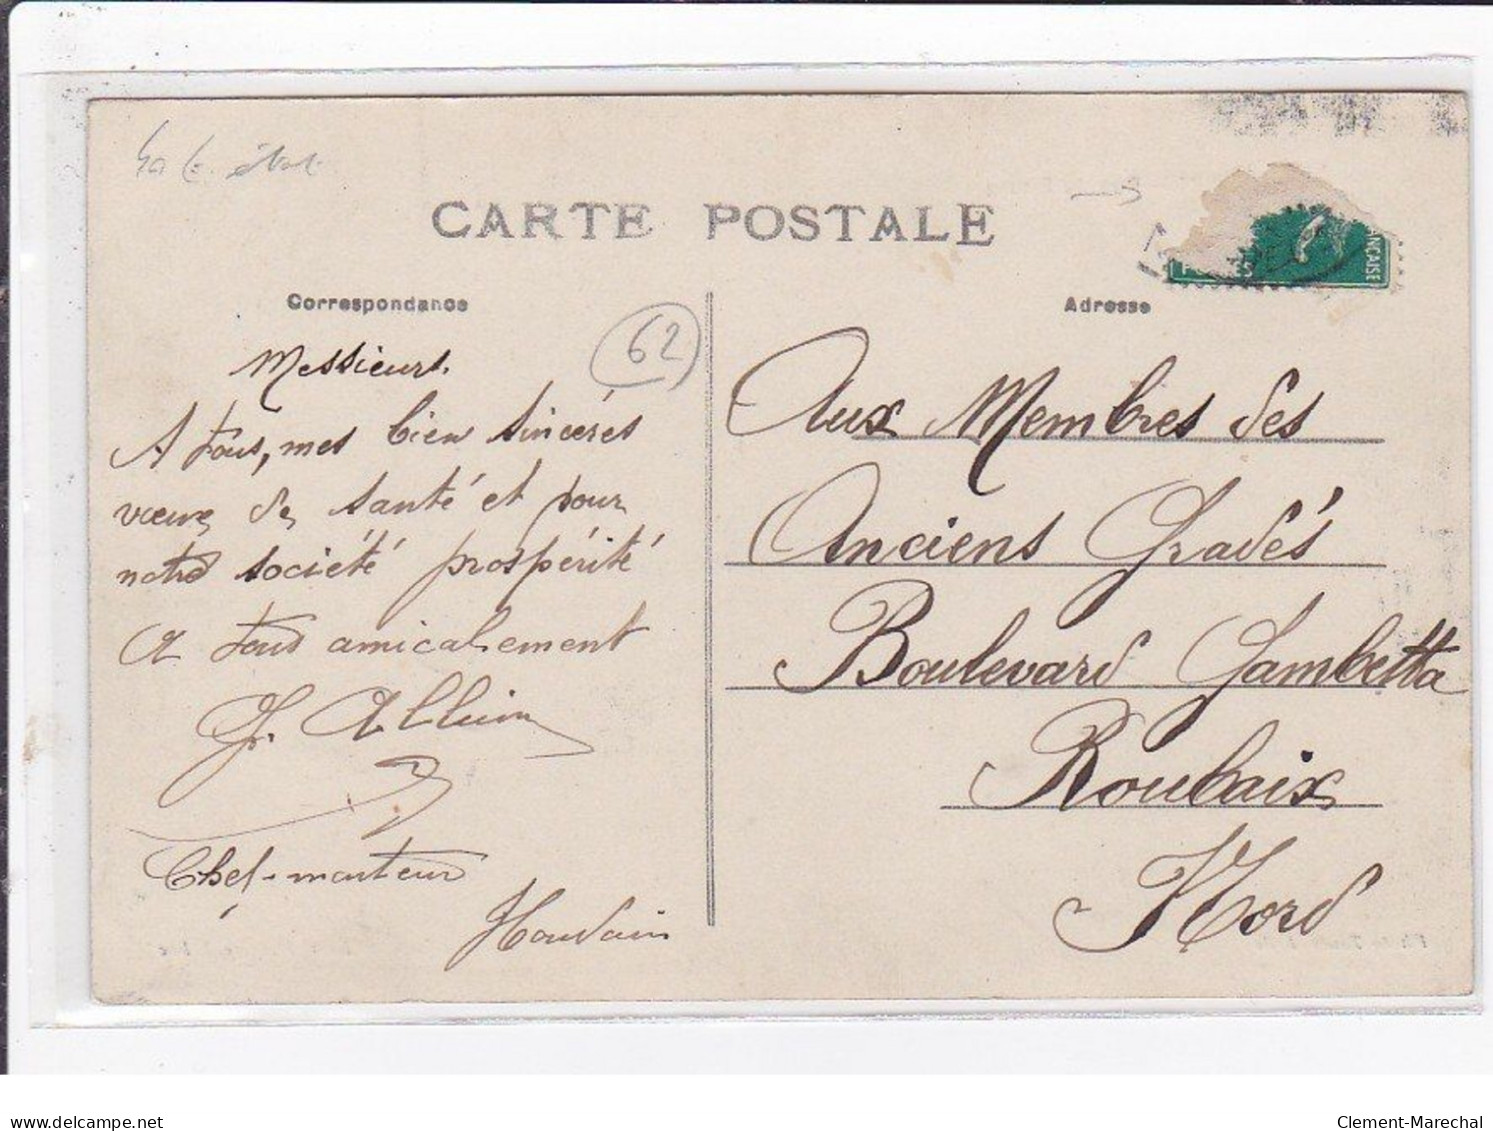 CARTE POSTALE
Correspondance
62
Messieurs.
A tous, mes bien sincères
vœux de santé et pour
notre société prospérité
A tous amicalement
Chef-monteur
Houdain
Adresse
POSTES
Aux Membres des
Anciens Gradés
Boulevard Gambetta
Roubaix
Nord
delcampe.net
Clement-Marechal